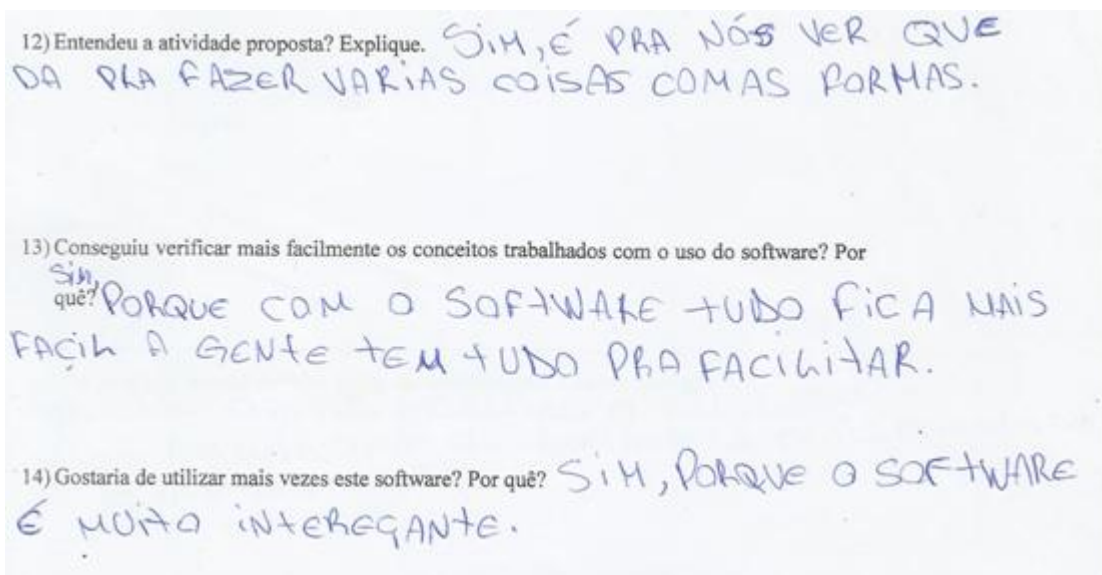 12) Entendeu a atividade proposta? Explique. SIM, É PRA NÓS VER QUE
DA PRA FAZER VARIAS COISAS COM AS FORMAS.
13) Conseguiu verificar mais facilmente os conceitos trabalhados com o uso do software? Por
SIM,
quê? PORQUE COM O SOFTWARE TUDO FICA MAIS
FACIL A GENTE TEM TUDO PRA FACILITAR.
14) Gostaria de utilizar mais vezes este software? Por quê? SIM, PORQUE O SOFTWARE
É MUITO INTEREÇANTE.